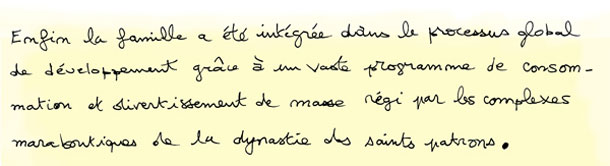 Enfin la famille a été intégrée dans le processus global
de développement grâce à un vaste programme de consom-
mation et divertissement de masse régi par les complexes
maraboutiques de la dynastie des saints patrons.